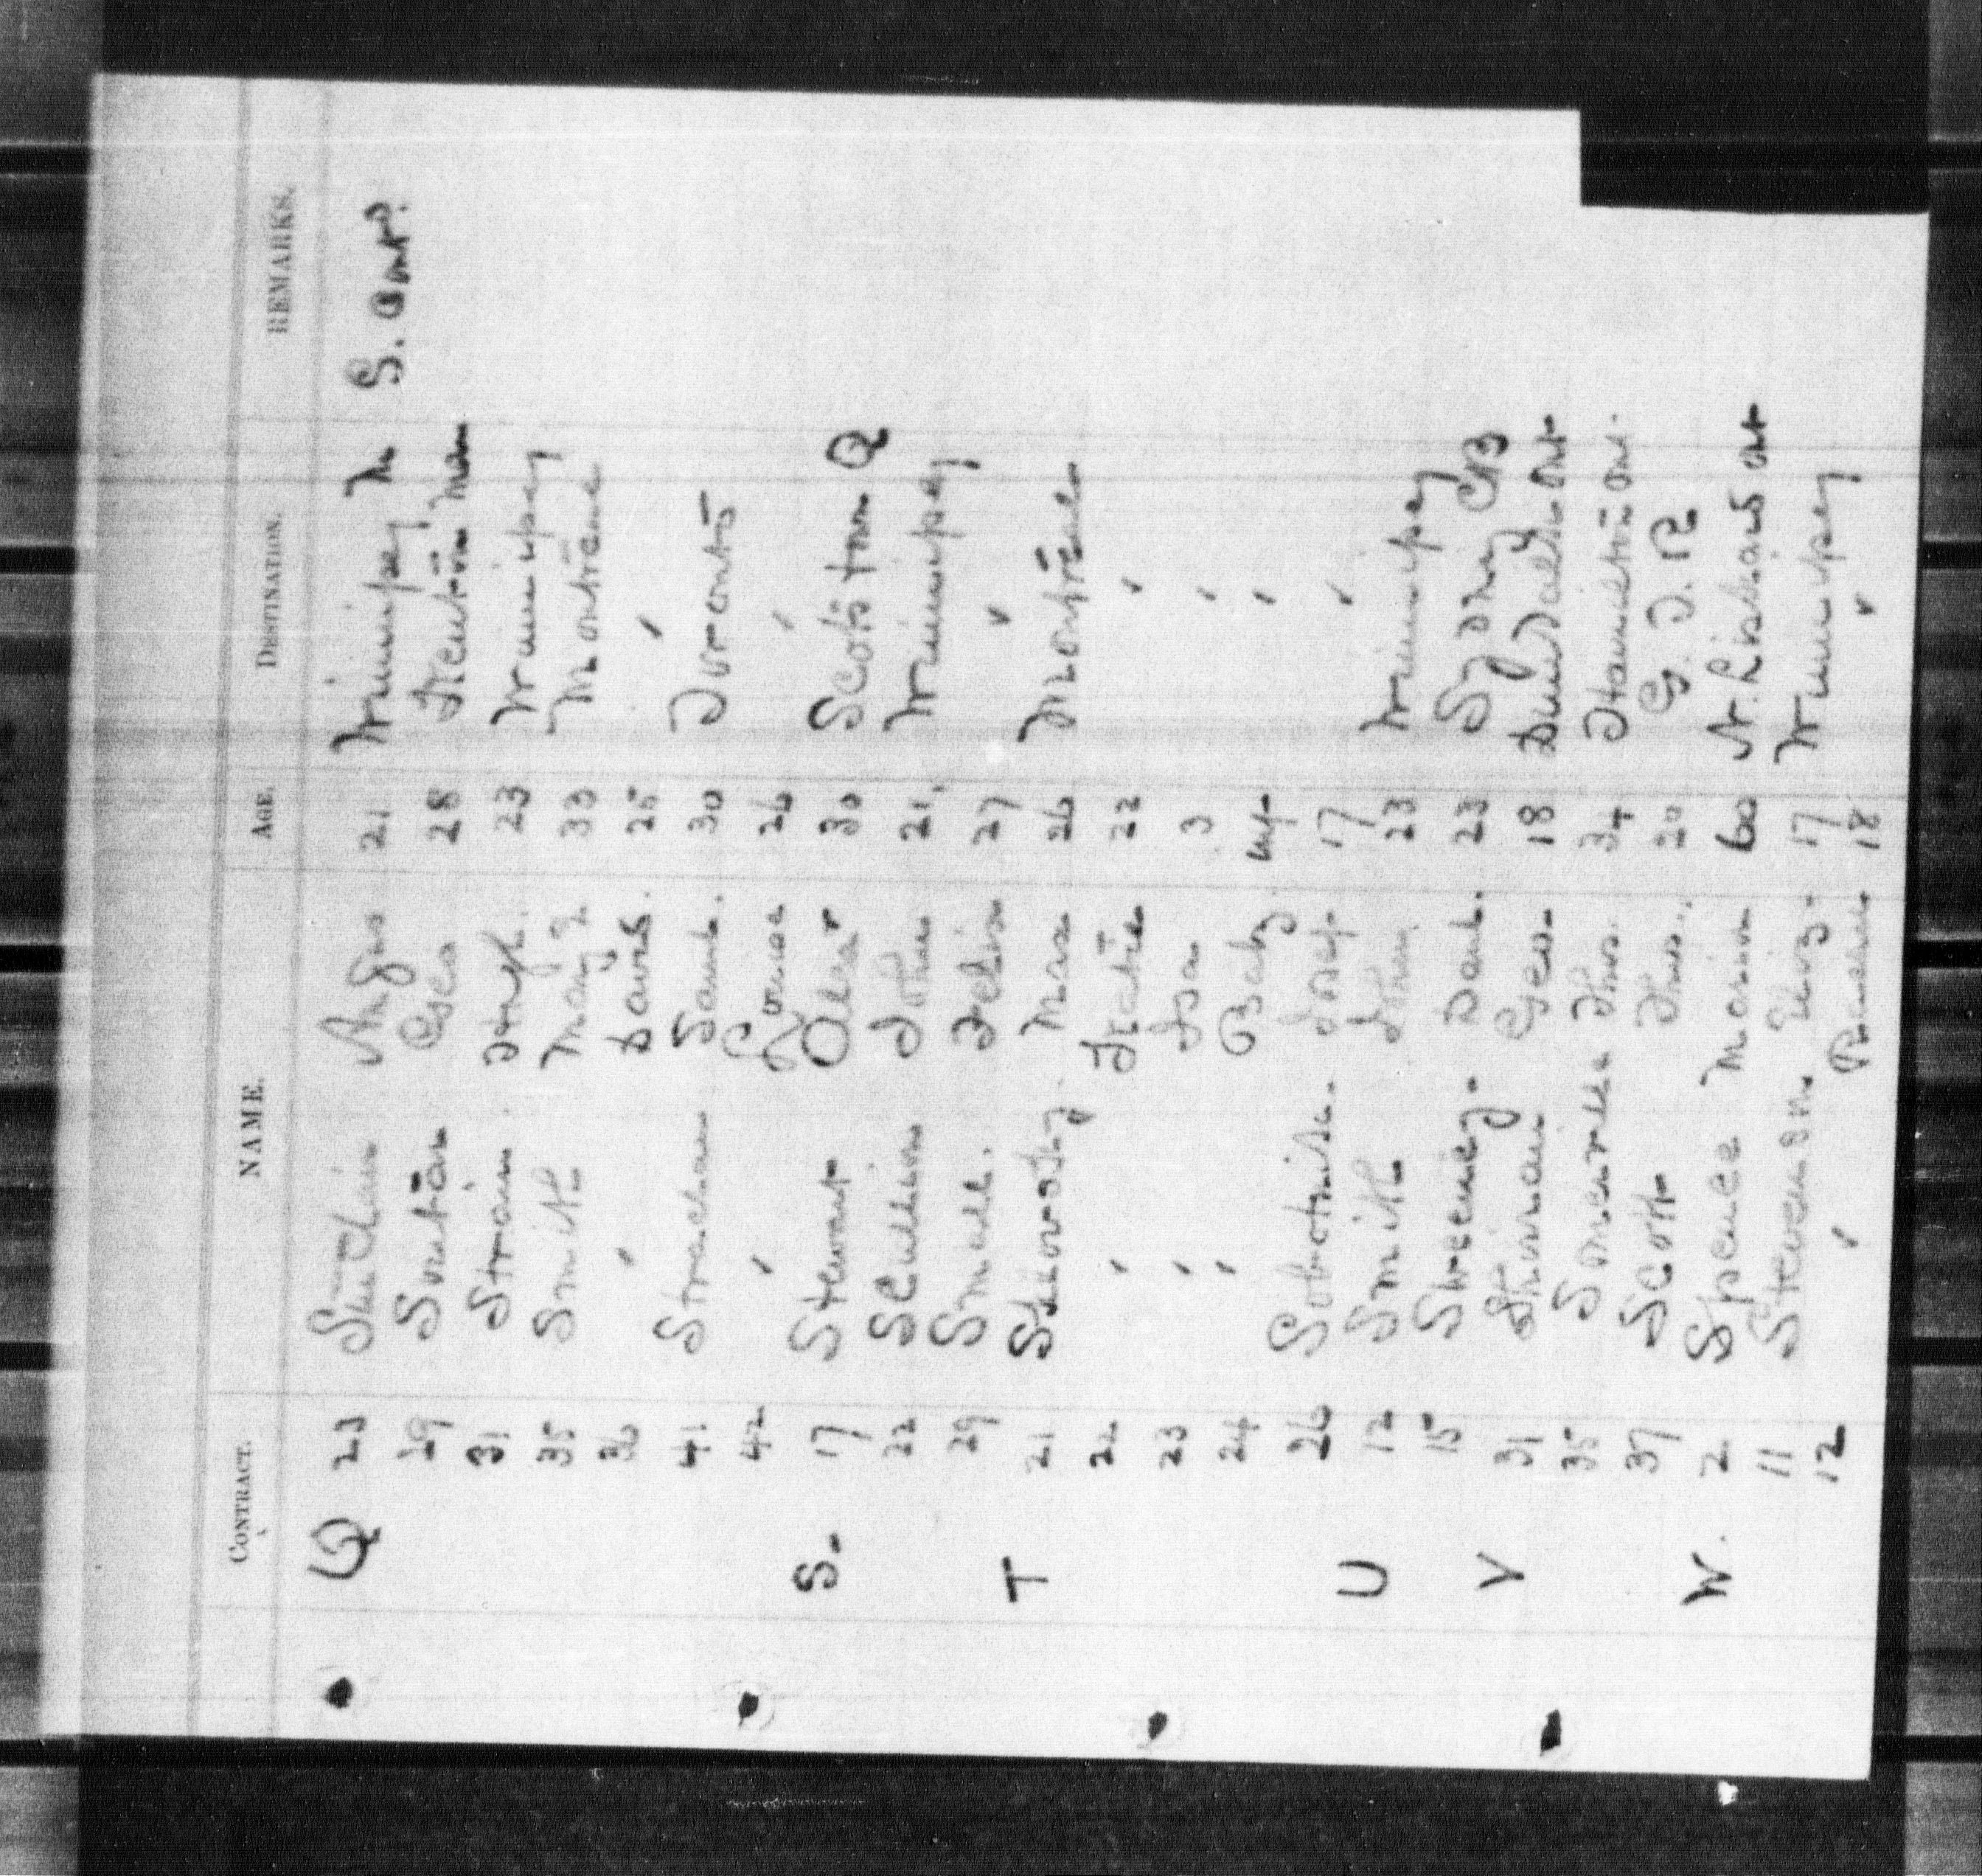 CONTRACT. NAME. AGE. DESTINATION. REMARKS.
S. Cont'd.
Q 23 Sinclair Angus 21 Winnipeg M
29 Geo 28 Man
31 Strain Hugh. 23 Winnipeg
35 Smith Mary J. 33 Montreal
36 " David. 25 "
41 Strachan Saml. 30 Toronto
42 " Louisa 26 "
S. 17 Stewart Alexr 30 Scotstown Q
22 Scullion John 21 Winnipeg
29 Small. Felix 27 "
T 21 Mrs 26 Montreal
22 " Katie 22 "
23 " Isa 3 "
24 " Baby Inf "
26 17 "
U 12 Smith John 23 Winnipeg
15 Sweeney. Danl. 23 Sydney CB
V 31 Geo. 18 Dundalk Ont
35 Somerville Thos. 34 Hamilton Ont.
37 Scott Thos. 20 G. T. P.
W. 2 Spence Marion 60 N. Liskeard Ont
11 Stevenson Eliz. 17 Winnipeg
12 " 18 "